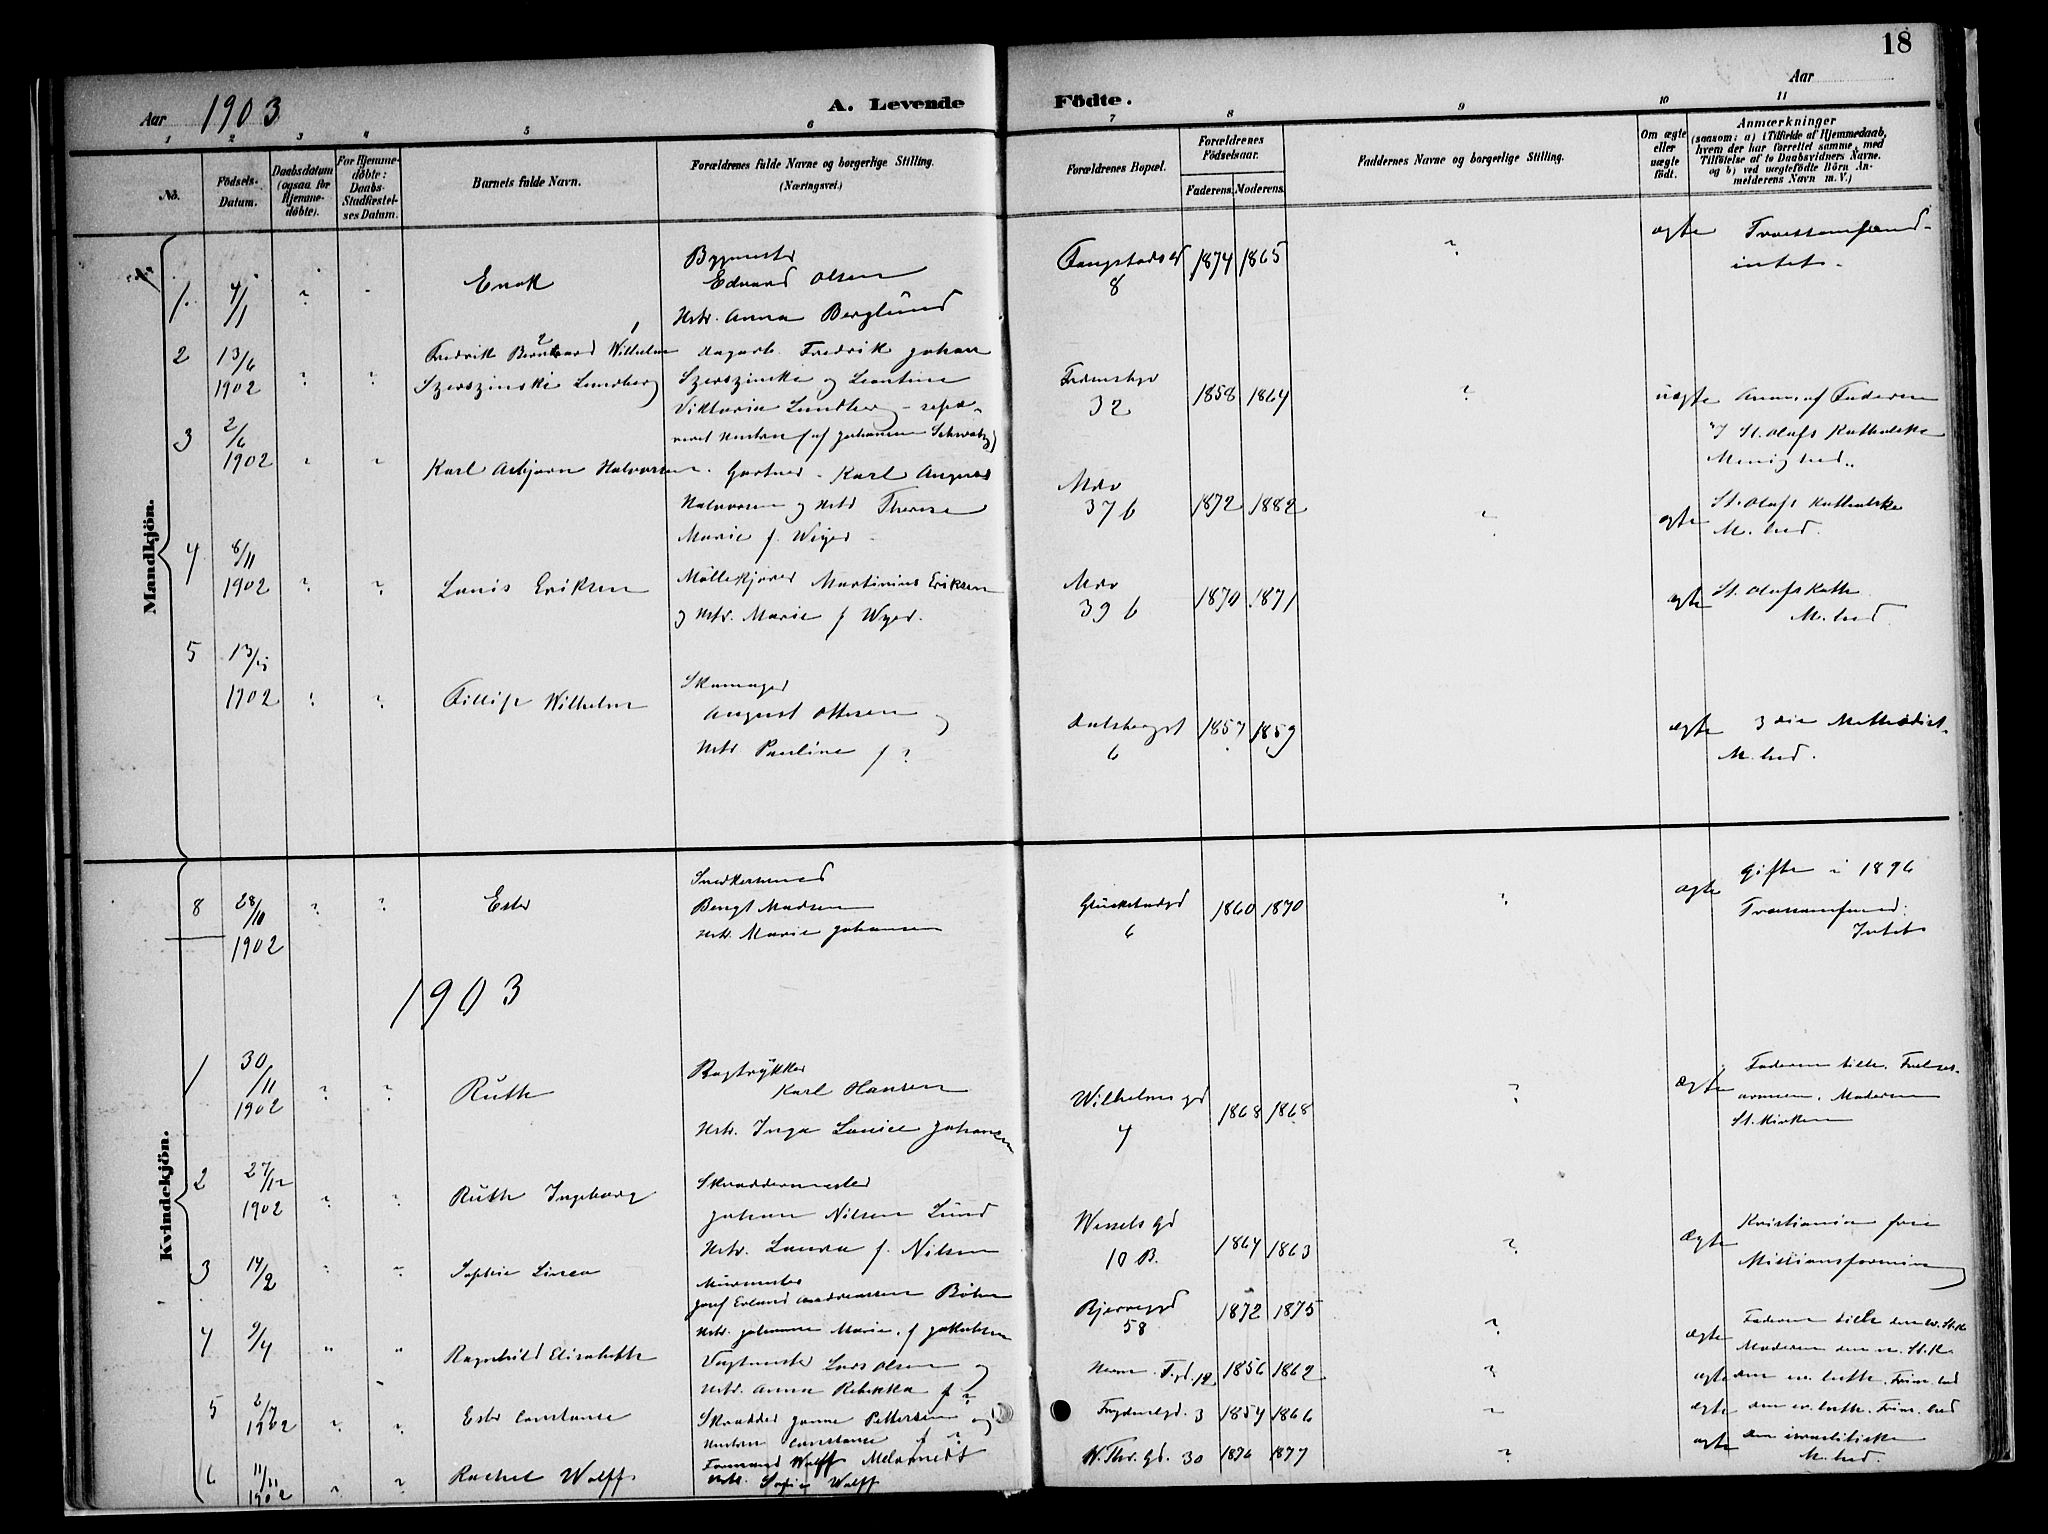 18
Aar 1903
A. Levende Födte.
Aar
1 2 3 4 5 6 7 8 9 10 11
No.
Födsels-Datum.
Daabsdatum (ogsaa for Hjemmedöbte).
For Hjemmedöbte: Daabs-Stadfæstelses Datum.
Barnets fulde Navn.
Forældrenes fulde Navne og borgerlige Stilling.
(Næringsvei.)
Forældrenes Bopæl.
Forældrenes Födselsaar.
Faderens. Moderens.
Faddernes Navne og borgerlige Stilling.
Om ægte eller uægte födt.
Anmærkninger
(saasom: a) i Tilfælde af Hjemmedaab, hvem der har forrettet samme, med Tilföielse af to Daabsvidners Navne. og b) ved uægtefödte Börn Anmelderens Navn m. V.)
Mandkjön.
1. 4/1 Enok
Bygmester
Edvard Olsen
Hstr. Anna Berglund
8
1874 1865
ægte
Troessamfund
intet.
2 13/6
1902
Fredrik Bernhard Wilhelm
Szerszinski Lundberg
Fredrik Johan
Szerszinske og Leontine
Viktoria Lundberg
32
1858 1864
uægte
Anm. af Faderen
St. Olafs Katholske
Menighed
3 2/6
1902
Karl Asbjørn Halvorsen
Gartner Karl August
Halvorsen og Hstr Therese
Marie f.
37 b
1872 1882
ægte
St. Olafs Katholske
M.hed.
4 8/11
1902
Louis Eriksen
Møllekjører Martinius Eriksen
og Hstr. Marie f
39 b
1870 1871
ægte
St. Olafs Kath
M.hed
5 13/
1902
Fillip Wilhelm
Skomager
August Ottesen og
Hstr Pauline f ?
Dalsbergst
6
1857 1859
ægte
3die Methodist
M.hed.
Kvindekjön.
8 28/10
1902
Ester
Snedkersvend
Bengt Madsen
Hstr. Marie Johansen
Glückstadgd
6
1860 1870
ægte
Gifte i 1896
Troessamfund:
Intet
1903
1 30/11
1902
Ruth
Bogtrykker
Karl Hansen
Hstr. Inga Louise Johansen
Wilhelmsgd
4
1868 1868
ægte
Faderen tilh. Frelsesarmeen, Moderen
St.kirken
2 27/12
1902
Ruth Ingeborg
Skræddermester
Johan Nilsen Lund
Hstr. Laura f. Nilsen
Wesselsgd
10 B.
1864 1863
ægte
Kristiania frie
Missionsforening
3 14/2
Sophie Linea
Murmester
Josef Erland Andreassen Böhn
Hstr. Johanne Marie f Jakobsen
58
1872 1875
ægte
Faderen tilh den ev. St.K
Moderen den n. St.K.
4 9/4
Ragnhild Elisabeth
Lars Olsen og
Hstr. Anna Rebekka f ?
12
1856 1862
ægte
den ev. luth. Frim.hed
5
1902
Ester Constance
Skrædder Janne Pettersen og
Hustru Constance f ?
3
1854 1866
ægte
den ev. luth. Frim.hed
6 11/11
1902
Rachel Wolff
Wolff
Hstr. Sofie Wolff
30
1876 1877
ægte
den israelitiske
M.hed.